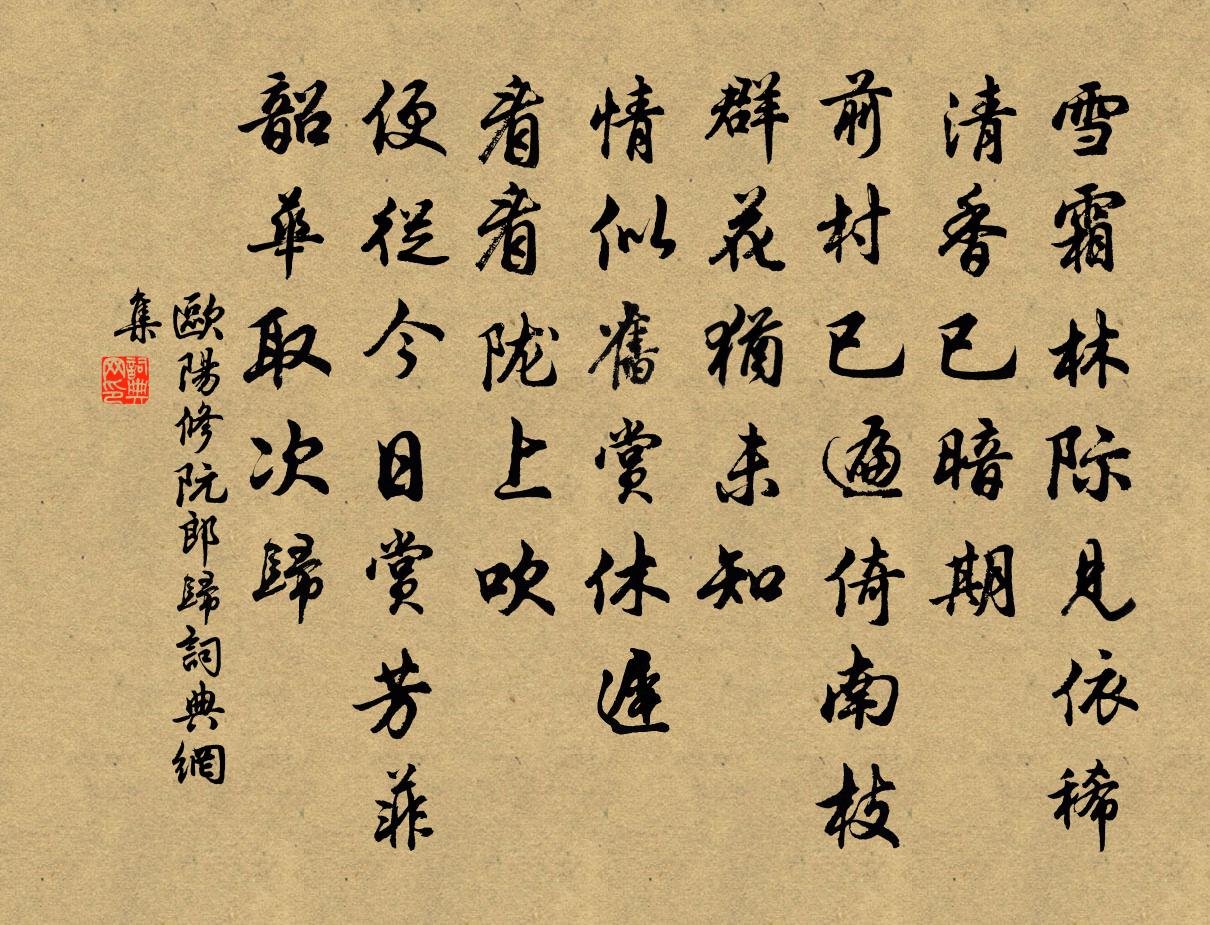 雪霜林际見依稀
清香已暗期
前村已遍倚南枝
群花猶未知
情似舊賞休遲
看看陇上吹
便從今日賞芳菲
韶華取次歸
歐陽修阮郎歸詞典網
集
詞典
网印